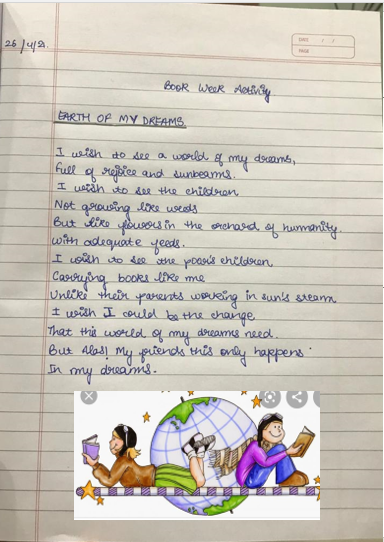 26/4/21.
DATE / /
PAGE
Book Week Activity
EARTH OF MY DREAMS
I wish to see a world of my dreams,
Full of rejoice and sunbeams.
I wish to see the children
Not growing like weeds
But like flowers in the orchard of humanity.
With adequate feeds.
I wish to see the poor's children,
Carrying books like me
Unlike their parents working in sun's steam
I wish I could be the change,
That this world of my dreams need.
But Alas! My friends this only happens
In my dreams.